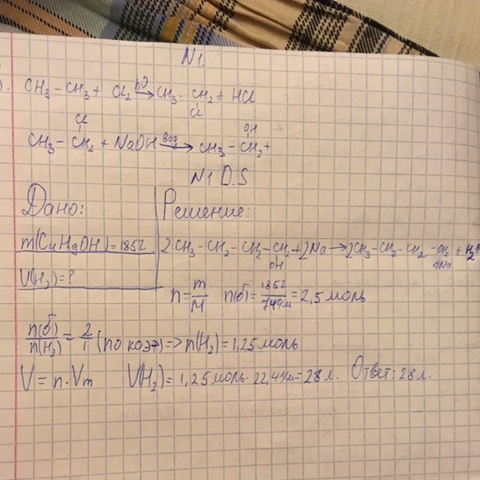 N1.
). CH3 - CH3 + Cl2 hν→ CH3 - CH2 + HCl
Cl
Cl
OH
CH3 - CH2 + NaOH вод→ CH3 - CH2 +
N1 D.S
Дано: Решение:
m(C4H9OH) = 185г 2CH3 - CH2 - CH2 - CH2 + 2Na → 2CH3 - CH2 - CH2 - CH2 + H2↑
OH ONa
V(H2) = ? n = m/M n(б) = 185г/74г/м = 2,5 моль
n(б)/n(H2) = 2/1 (по коэф) => n(H2) = 1,25 моль
V = n · Vm V(H2) = 1,25 моль · 22,4 л/м = 28 л. Ответ: 28 л.